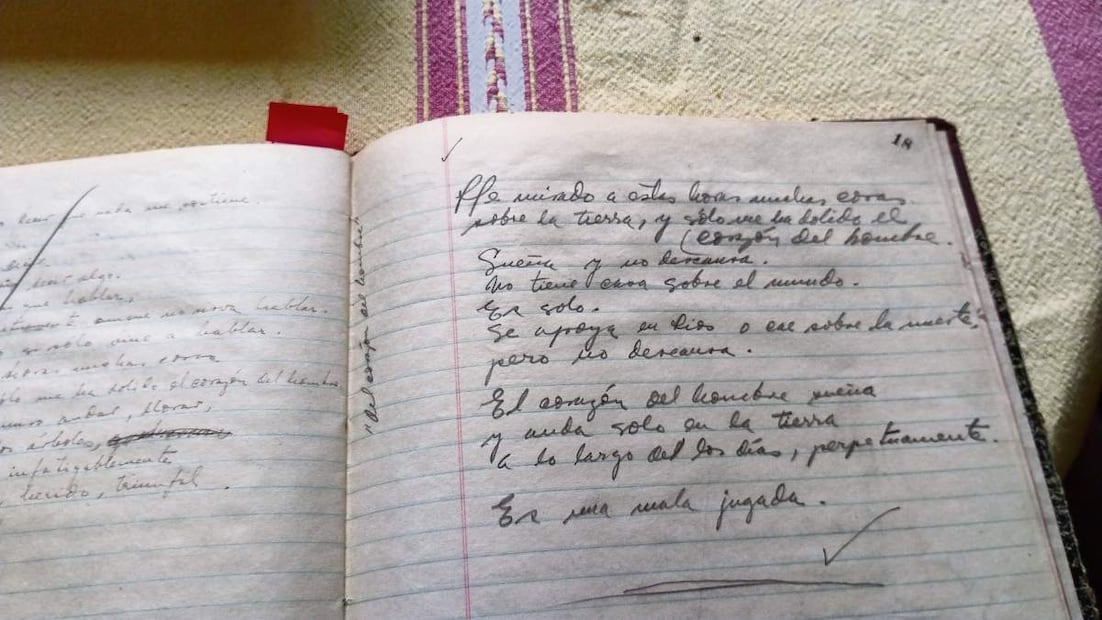 que nada me sostiene.
algo.
hablar,
aunque no sirva hablar.
solo voy a hablar.
horas muchas cosas
me ha dolido el corazón del hombre.
andar, llorar,
árboles,
infatigablemente
herido, triunfal.
"Del corazón del hombre"
18
He mirado a estas horas muchas cosas
sobre la tierra, y sólo me ha dolido el
(corazón del hombre.
Sueña y no descansa.
No tiene casa sobre el mundo.
Es solo.
Se apoya en Dios o cae sobre la muerte,
pero no descansa.
El corazón del hombre sueña
y anda solo en la tierra
a lo largo del los días, perpetuamente.
Es una mala jugada.